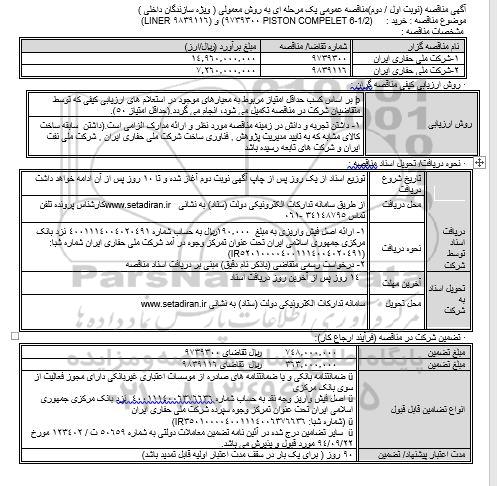 آگهی مناقصه (نوبت اول / دوم)مناقصه عمومی یک مرحله ای به روش معمولی ( ویژه سازندگان داخلی )
موضوع مناقصه : خرید : (۹۷۳۹۳۰۰ PISTON COMPELET 6-1/2) و (۹۸۳۹۱۱۶ LINER)
مشخصات مناقصه :
نام مناقصه گزار شماره تقاضا/ مناقصه مبلغ برآورد (ریال/ارز)
۱-شرکت ملی حفاری ایران ۹۷۳۹۳۰۰ ۱۴,۹۶۰,۰۰۰,۰۰۰
۲-شرکت ملی حفاری ایران ۹۸۳۹۱۱۶ ۷,۲۶۰,۰۰۰,۰۰۰
· روش ارزیابی کیفی مناقصه گران :
روش ارزیابی
p بر اساس کسب حداقل امتیاز مربوط به معیارهای موجود در استعلام های ارزیابی کیفی که توسط
متقاضیان شرکت در مناقصه تکمیل می شود، انجام می گردد.(حداقل امتیاز ۵۰).
۱- داشتن تجربه و دانش در زمینه مناقصه مورد نظر و ارائه مدارک الزامی است.(داشتن سابقه ساخت
کالای مشابه که به تایید مدیریت پژوهش , فناوری ساخت شرکت ملی حفاری ایران , شرکت ملی نفت
ایران و شرکت های تابعه رسیده باشد
· نحوه دریافت/ تحویل اسناد مناقصه :
دریافت اسناد توسط شرکت
تاریخ شروع دریافت
توزیع اسناد از یک روز پس از چاپ آگهی نوبت دوم آغاز شده و تا ۱۰ روز پس از آن ادامه خواهد داشت
محل دریافت
از طریق سامانه تدارکات الکترونیکی دولت (ستاد) به نشانی www.setadiran.irکارشناس پرونده تلفن
تماس ۳۴۱۴۸۷۹۵-۰۶۱
نحوه دریافت
۱- ارائه اصل فیش واریزی به مبلغ ۱۹۰,۰۰۰ریال به حساب شماره ۴۰۰۱۱۱۴۰۰۴۰۲۰۴۹۱ نزد بانک
مرکزی جمهوری اسلامی ایران تحت عنوان تمرکز وجوه در آمد شرکت ملی حفاری ایران شماره شبا:
۲- درخواست رسمی متقاضی (باذکر نام دقیق) مبنی بر دریافت اسناد مناقصه
تحویل اسناد به شرکت
آخرین مهلت
۱۴ روز پس از آخرین روز دریافت اسناد
محل تحویل
سامانه تدارکات الکترونیکی دولت (ستاد) به نشانی www.setadiran.ir
· تضمین شرکت در مناقصه (فرآیند ارجاع کار):
مبلغ تضمین ۷۴۸,۰۰۰,۰۰۰ ریال تقاضای ۹۷۳۹۳۰۰
مبلغ تضمین ۳۶۳,۰۰۰,۰۰۰ ریال تقاضای ۹۸۳۹۱۱۶
انواع تضامین قابل قبول
ü ضمانتنامه بانکی و یا ضمانتنامه های صادره از موسسات اعتباری غیربانکی دارای مجوز فعالیت از
سوی بانک مرکزی
ü اصل فیش واریز وجه نقد به حساب شماره ۴۰۰۱۱۱۴۰۰۶۳۷۶۶۳۶ نزد بانک مرکزی جمهوری
اسلامی ایران تحت عنوان تمرکز وجوه سپرده شرکت ملی حفاری ایران
ü سایر تضامین درج شده در آئین نامه تضمین معاملات دولتی به شماره ۵۰۶۵۹ ت / ۱۲۳۴۰۲ مورخ
۹۴/۰۹/۲۲ مورد قبول و پذیرش می باشد.
مدت اعتبار پیشنهاد/ تضمین ۹۰ روز ( برای یک بار در سقف مدت اعتبار اولیه قابل تمدید باشد)